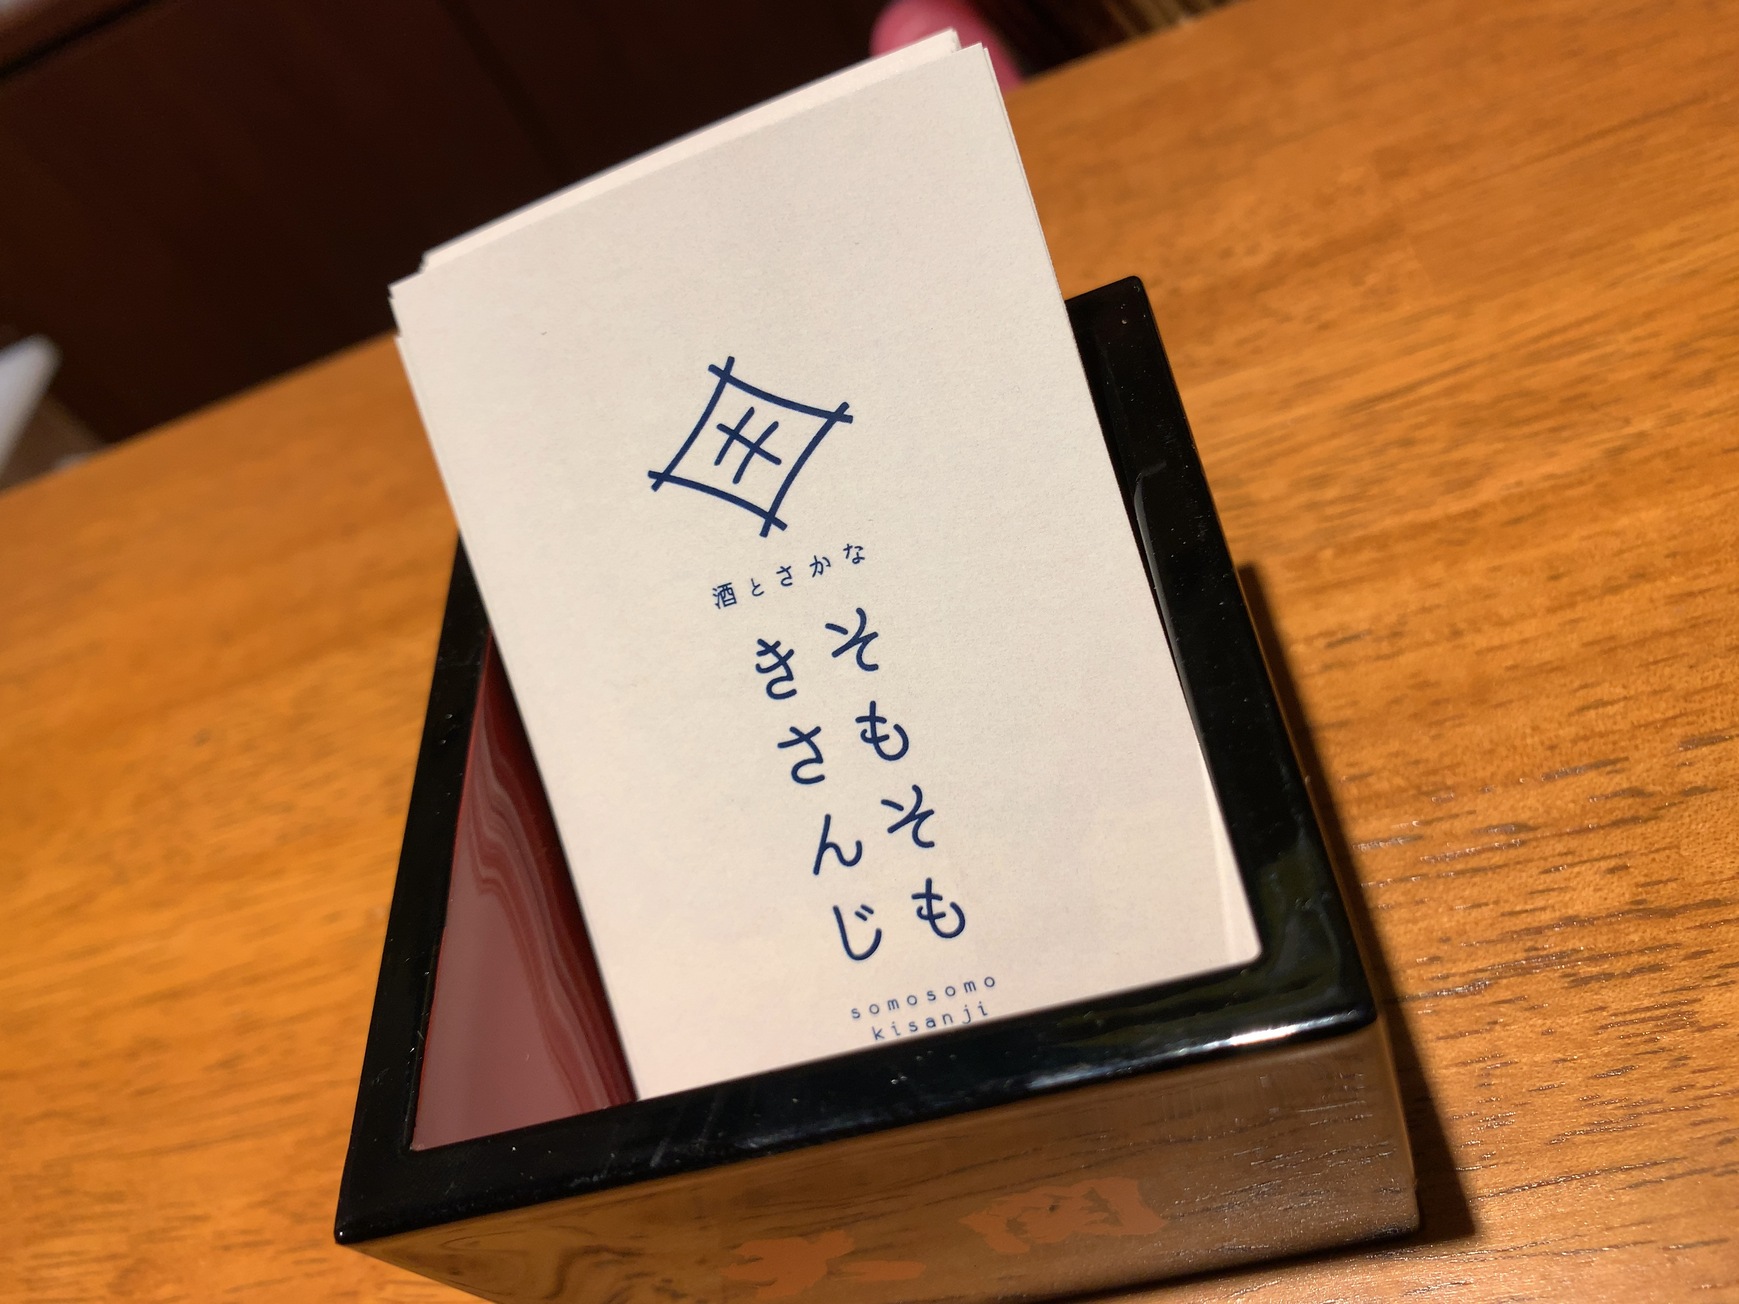 酒とさかな
そもそも
きさんじ
somosomo
kisanji